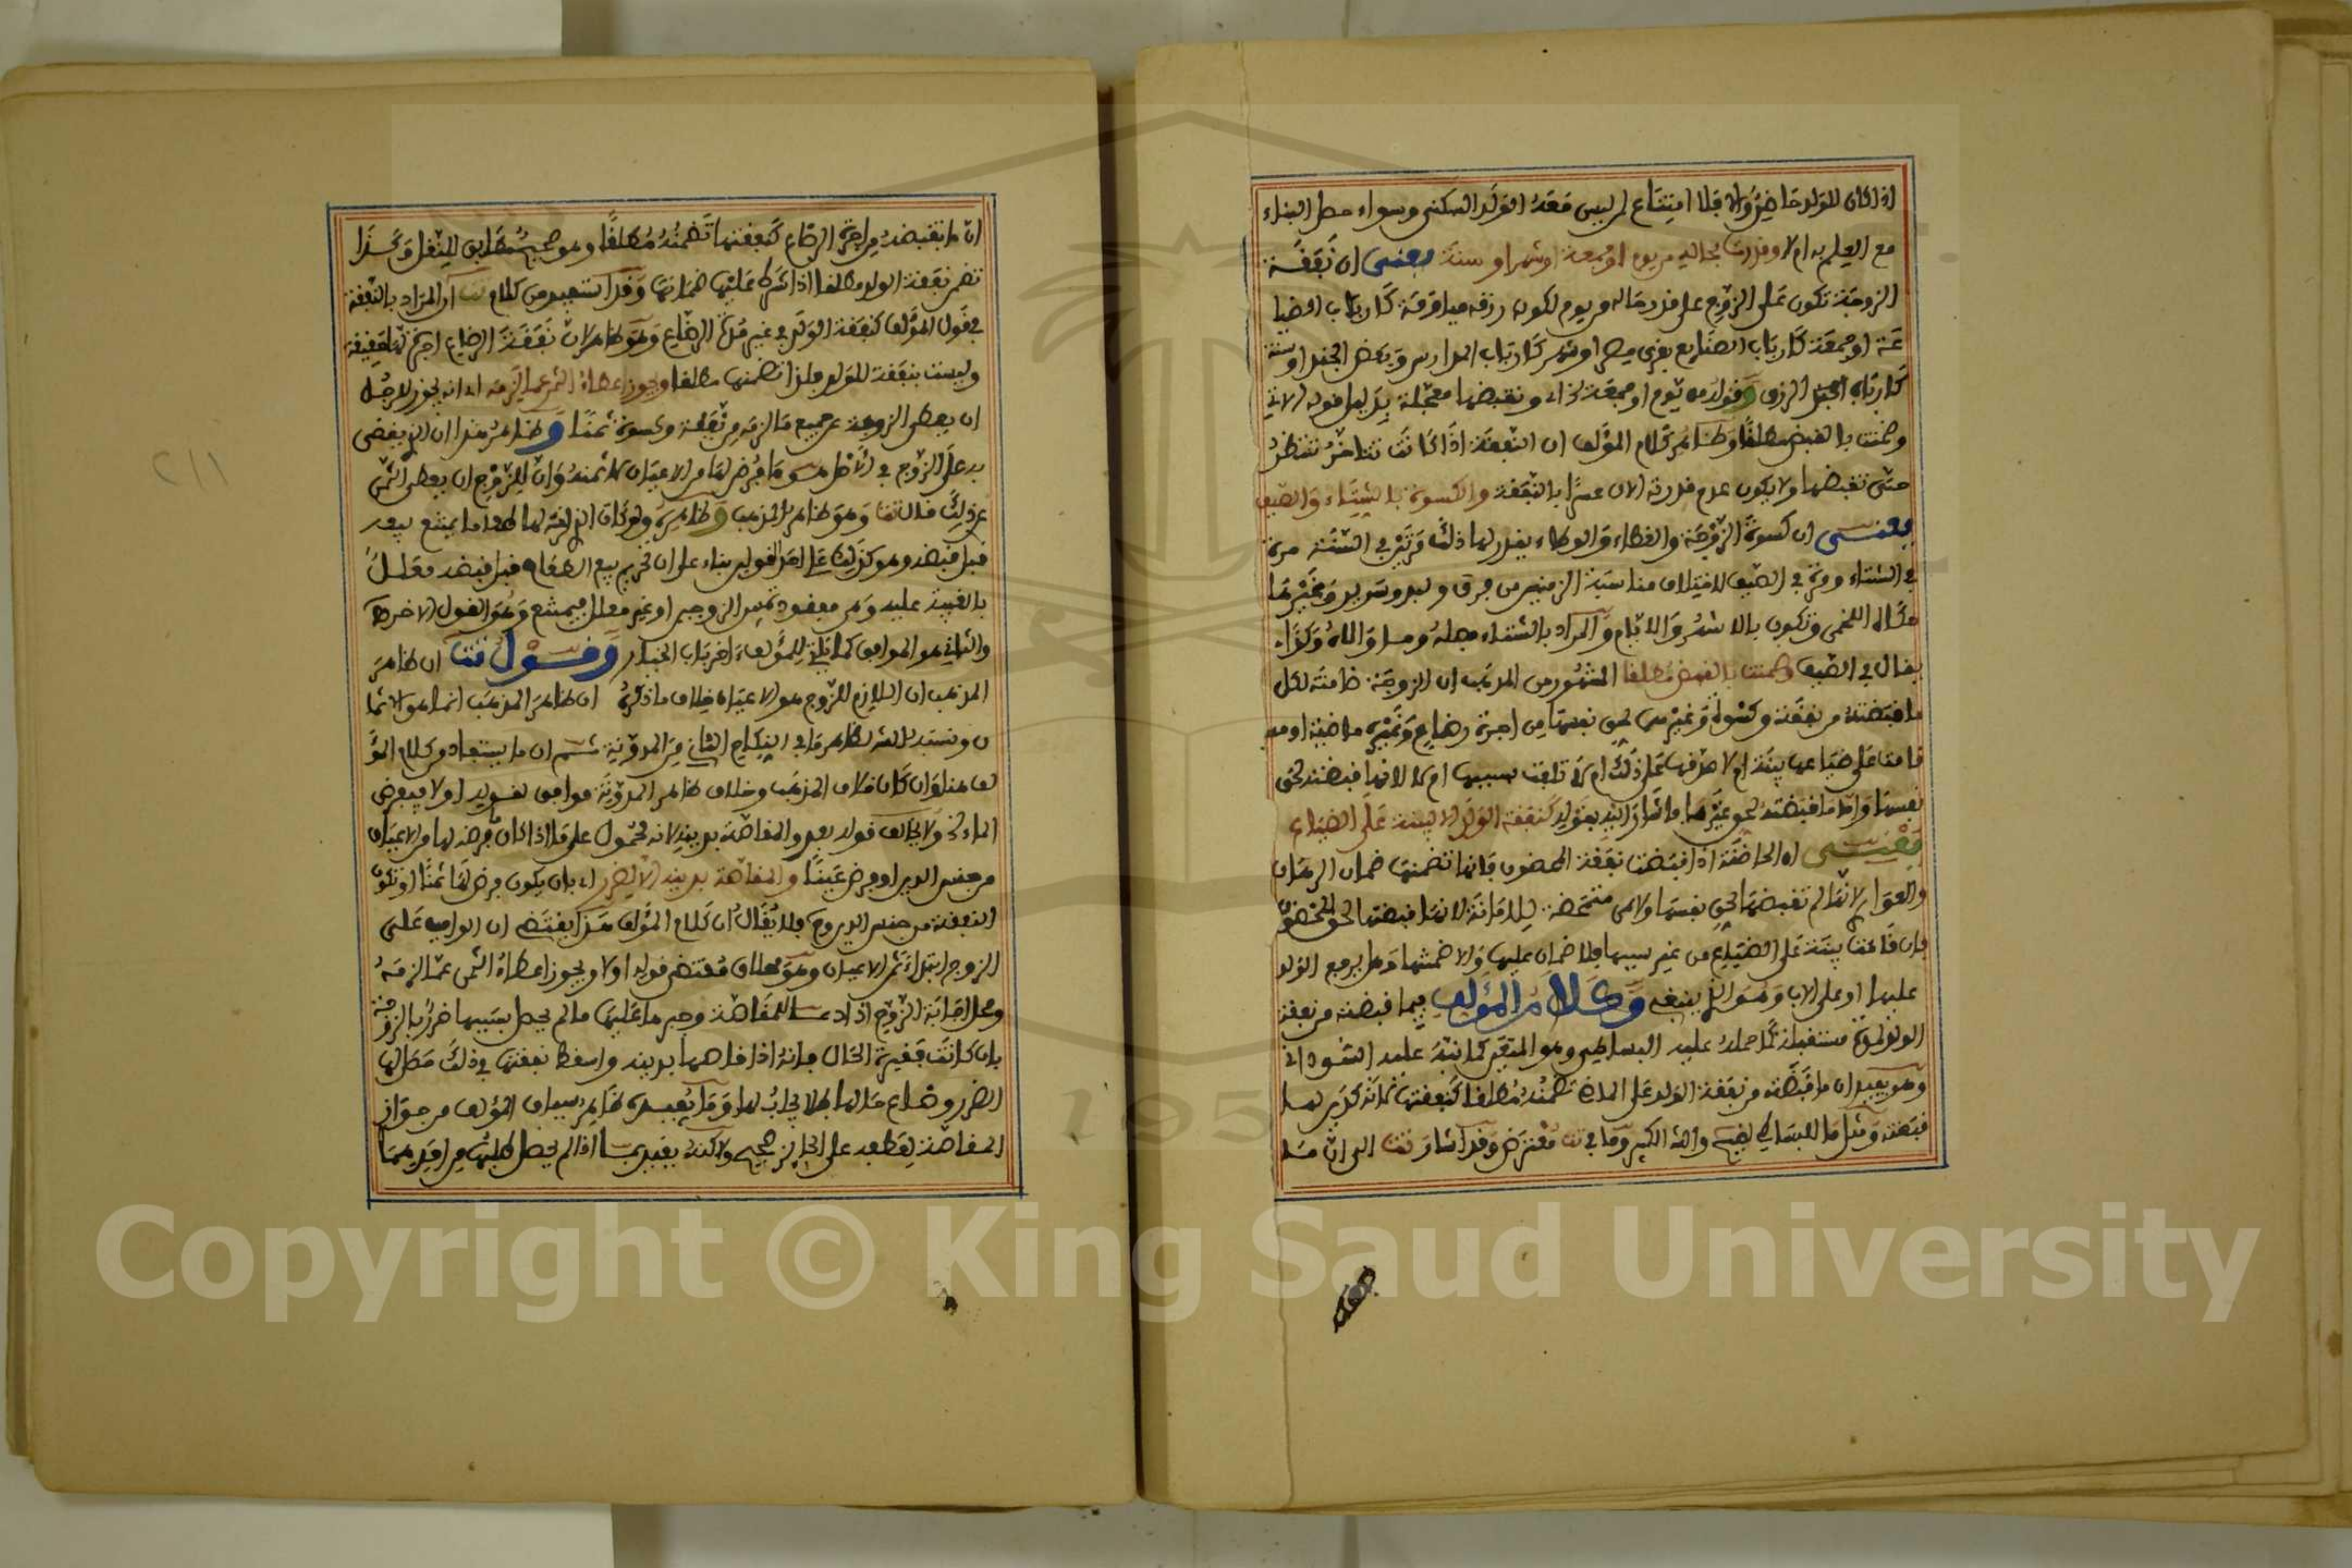 اذا كان للولد حاضن والا فلا امتناع لمن ليس معه الولد السكنى وسواء حصل البناء
مع العلم به ام لا وقدرت بحاله من يوم او جمعة او شهر او سنة يعني ان نفقة
الزوجة تكون على الزوج على قدر حاله من يوم لكون رزقه مياومة كارباب الصنا
او جمعة كارباب الصنايع بقرى مصر او شهر كارباب المدارس وبعض الجند او سنة
كارباب الرزق وقوله من يوم او جمعة الخ اي وتقبضها معجلة بدليل قوله الاتي
وضمنت بالقبض مطلقا وظاهر كلام المؤلف ان النفقة اذا كانت تتاخر تنتظر
حتى تقبضها ولا يكون عدم قدرته الان عسرا بالنفقة والكسوة بالشتاء والصيف
يعني ان كسوة الزوجة والغطاء والوطاء يقدر لها ذلك مرتين في السنة مرة
في الشتاء ومرة في الصيف لاختلاف مناسبة الزمنين من فرق ولبد وسرير وغيرها
قال اللخمي وتكون بالاشهر والايام والمراد بالشتاء فصله وما والاه وكذا
يقال في الصيف وضمنت بالقبض مطلقا المشهور من المذهب ان الزوجة ضامنة لكل
ما قبضته من نفقة وكسوة وغيرهما لحق نفسها من اجرة رضاع وغيره ماضية او مستقبلة
قامت على ضياعها بينة ام لا صرفها على ذلك ام لا تلفت بسببها ام لا لانها قبضته لحق
نفسها واما ما قبضته لحق غيرها فاشار اليه بقوله كنفقة الولد الا لبينة على الضياع
يعني ان الحاضنة اذا قبضت نفقة المحضون فانها تضمنها ضمان الرهان
والعواري لانها لم تقبضها لحق نفسها ولا هي متمحضة للامانة لانها قبضتها لحق المحضون
فان قامت بينة على الضياع من غير سببها فلا ضمان عليها والا ضمنتها وهل يرجع الولد
عليها او على الاب وهو الذي ينبغي وكلام المؤلف فيما قبضته من نفقة
الولد لمدة مستقبلة كما حمله عليه البساطي وهو المتعين كما نبه عليه السنهوري
وهو يفيد ان ما قبضته من نفقة الولد على الماضي تضمنه مطلقا كنفقتها لانه كدين لها
قبضته ومثل ما للبساطي لغيره والله الكبير وما في تت معترض وقد اشار تت الى ان ما
ان ما تقبضه من اجرة الرضاع كنفقتها تضمنه مطلقا وهو صحيح مطابق للنقل وكذا
تضمن نفقة الولد مطلقا اذا شرط عليها ضمانها وقد استفيد من كلام تت ان المراد بالنفقة
في قول المؤلف كنفقة الولد في غير مدة الرضاع وهو ظاهر لان نفقة الرضاع اجرة لها حقيقة
وليست بنفقة للولد فلذا تضمنها مطلقا ويجوز اعطاء الثمن عما لزمه اي انه يجوز للرجل
ان يعطي الزوجة عن جميع ما لزمه من نفقة وكسوة ثمنا وظاهر هذا ان الذي يقضى
به على الزوج في الاصل هو ما يفرض لها من الاعيان لا ثمنه وان للزوج ان يعطي الثمن
عن ذلك قال تت وهو ظاهر المذهب وظاهره ولو كان الذي لزمه لها طعاما يمتنع بيعه
قبل قبضه وهو كذلك على احد القولين بناء على ان تحريم بيع الطعام قبل قبضه معلل
بالغيبة عليه وهي مفقودة بين الزوجين او غير معلل فيمتنع وهو القول الاخر
والثاني هو الموافق كما ياتي للمؤلف اخر باب الخيار وقول تت ان ظاهر
المذهب ان اللازم للزوج هو الاعيان خلاف ما ذكره ان ظاهر المذهب انما هو الاثما
ن ونسبه لظاهر ما في النكاح الثاني من المدونة ثم ان ما يستفاد من كلام المؤ
لف هنا وان كان خلاف المذهب وخلاف ظاهر المدونة موافق لقوله اولا فيفرض
الماء الخ ولا يخالف قوله بعد والمقاصة بدينه لانه محمول على ما اذا كان فرضه لها من الاعيان
من جنس الدين او فرض عينا والمقاصة بدينه الا لضرر اي بان يكون فرض لها ثمنا او تكون
النفقة من جنس الدين فلا يقال ان كلام المؤلف هذا يقتضي ان الواجب على
الزوج ابتداء ثمن الاعيان وهو خلاف مقتضى قوله اولا ويجوز اعطاء الثمن عما لزمه
ومحل اجابة الزوج اذا دعا للمقاصة وجبرها عليها ما لم يحصل بسببها ضرر بالزوجة
بان كانت فقيرة الحال فانه اذا قاصها بدينه واسقط نفقتها في ذلك حصل لها
الضرر وضاع حالها فلا يجاب لها وما يفيده ظاهر سياق المؤلف من جواز
المقاصة لعطفه على الجائز صحيح ولاكنه يقيد بما اذا لم يحصل طلبها من احدهما
٢١١
Copyright © King Saud University
195